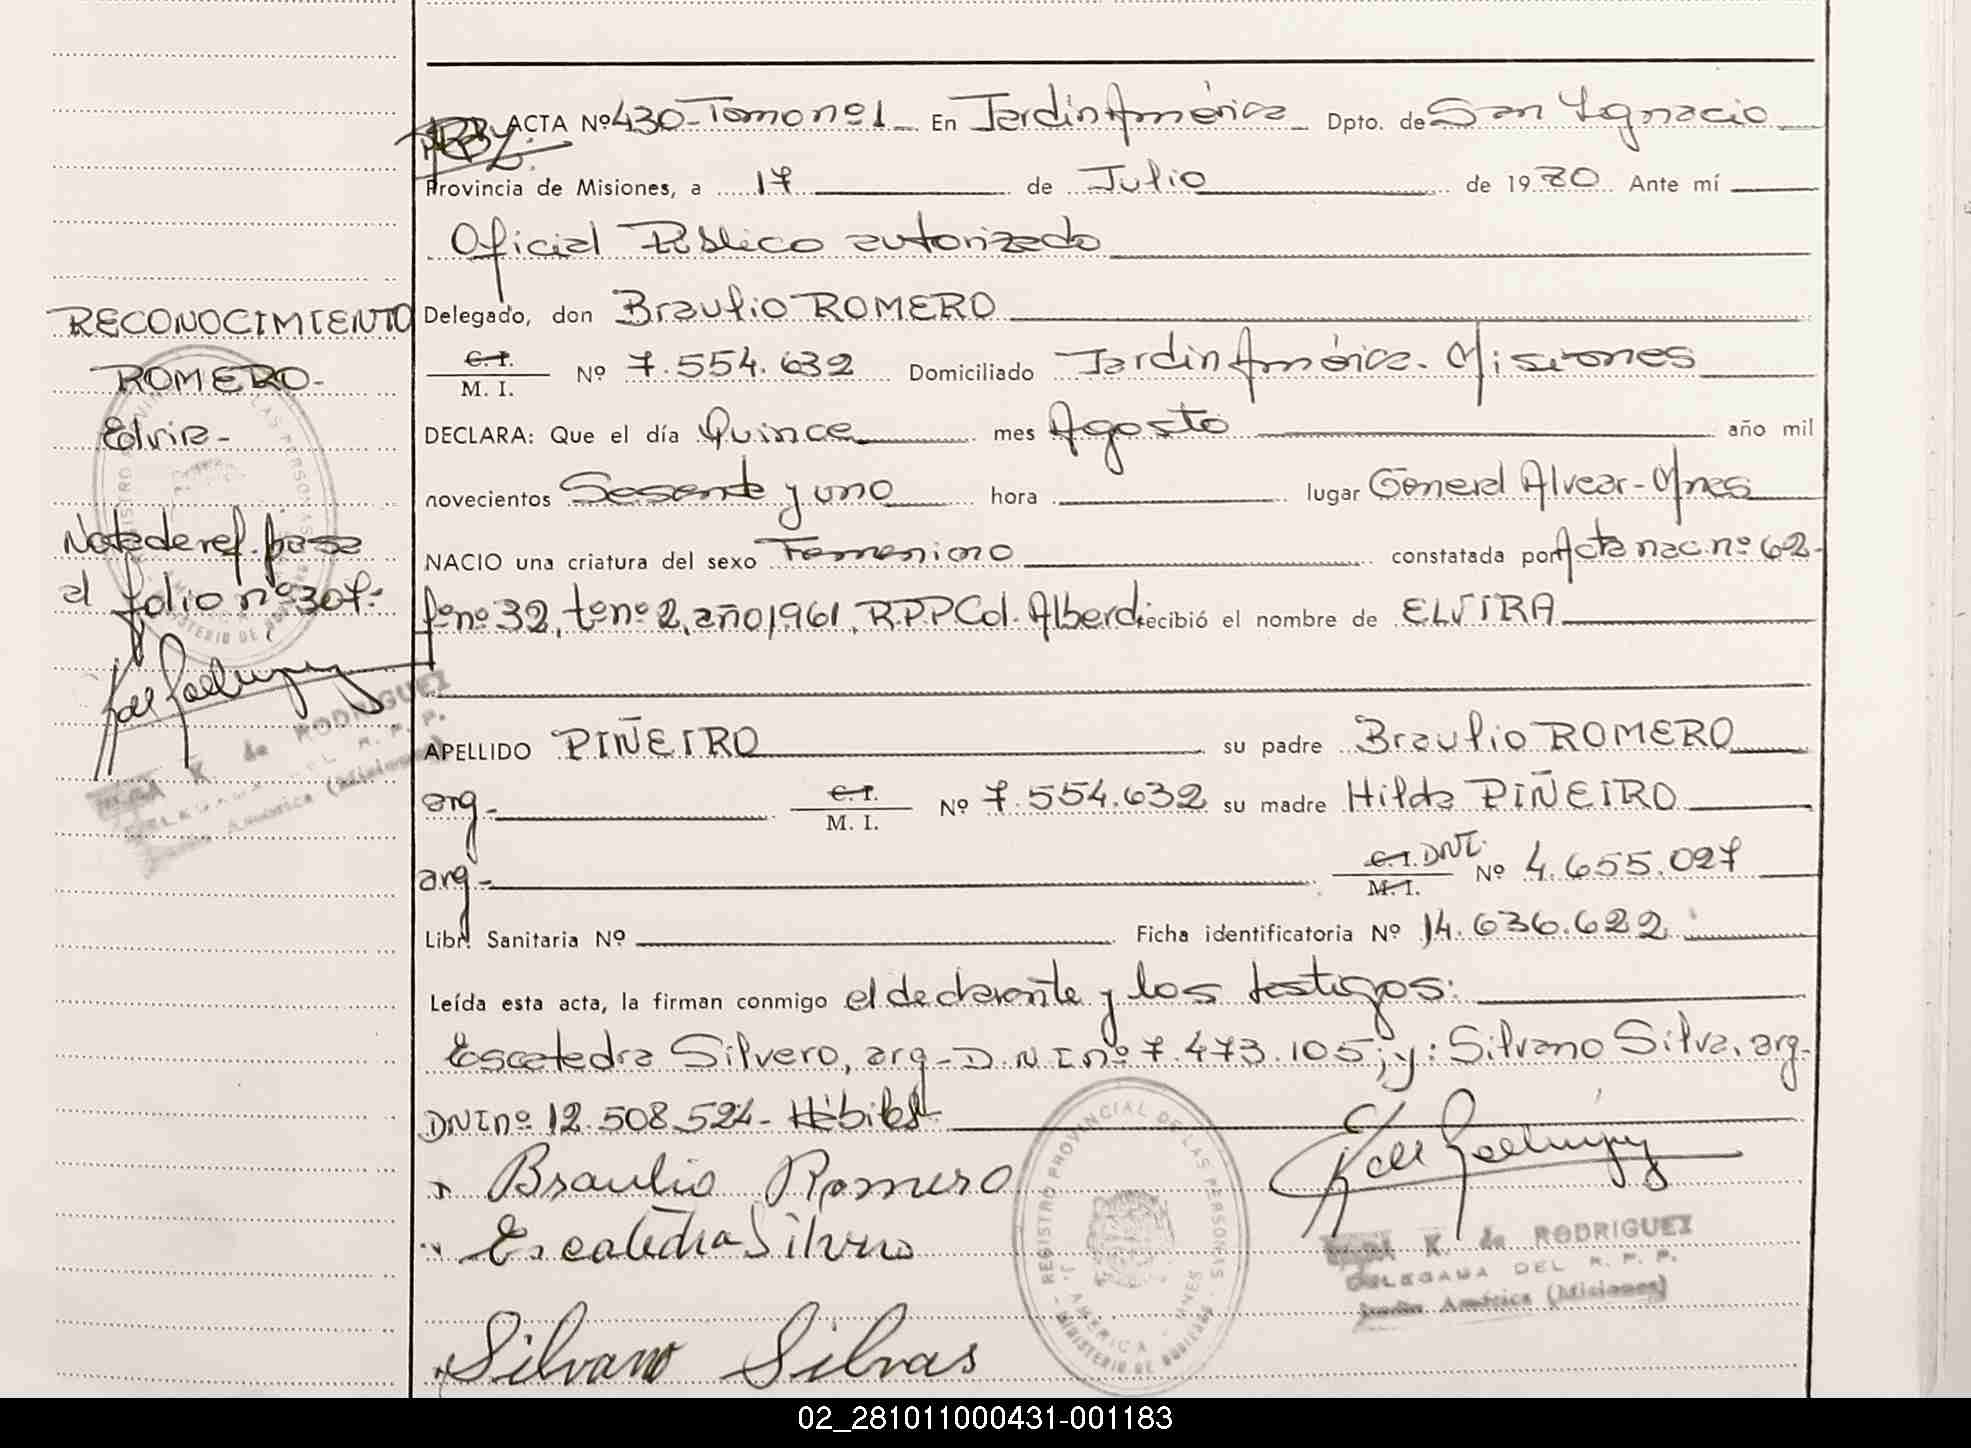 ACTA Nº 430-Tomo nº 1 En Jardín América Dpto. de San Ignacio
Provincia de Misiones, a 17 de Julio de 1980 Ante mí
Oficial Público autorizado
Delegado, don Braulio ROMERO
C.I. M. I. Nº 7.554.632 Domiciliado Jardin América. Misiones
DECLARA: Que el día Quince mes Agosto año mil
novecientos Sesenta y uno hora lugar General Alvear-Mnes
NACIO una criatura del sexo Femenino constatada por Acta nac. nº 62-
fº nº 32, tº nº 2, año 1961, R.P.P Col. Alberdi recibió el nombre de ELVIRA
APELLIDO PIÑEIRO su padre Braulio ROMERO
arg- C.I. M. I. Nº 7.554.632 su madre Hilda PIÑEIRO
arg- C.I. DNI. M.I. Nº 4.655.027
Libr. Sanitaria Nº Ficha identificatoria Nº 14.636.622
Leída esta acta, la firman conmigo el declarante y los testigos:
Escatedra Silvero, arg- D.N.I nº 7.473.105; y: Silvano Silva, arg-
DNI nº 12.508.524- Hábiles-
Braulio Romero
Escatedra Silvero
Silvano Silvas
RECONOCIMIENTO
ROMERO-
Elvira-
Nota de ref. pasa
al folio nº 307.-
K de RODRIGUEZ
REGISTRO PROVINCIAL DE LAS PERSONAS
J. AMERICA - MNES
MINISTERIO DE
K. de RODRIGUEZ
DELEGADA DEL R. P. P.
Jardín América (Misiones)
02_281011000431-001183